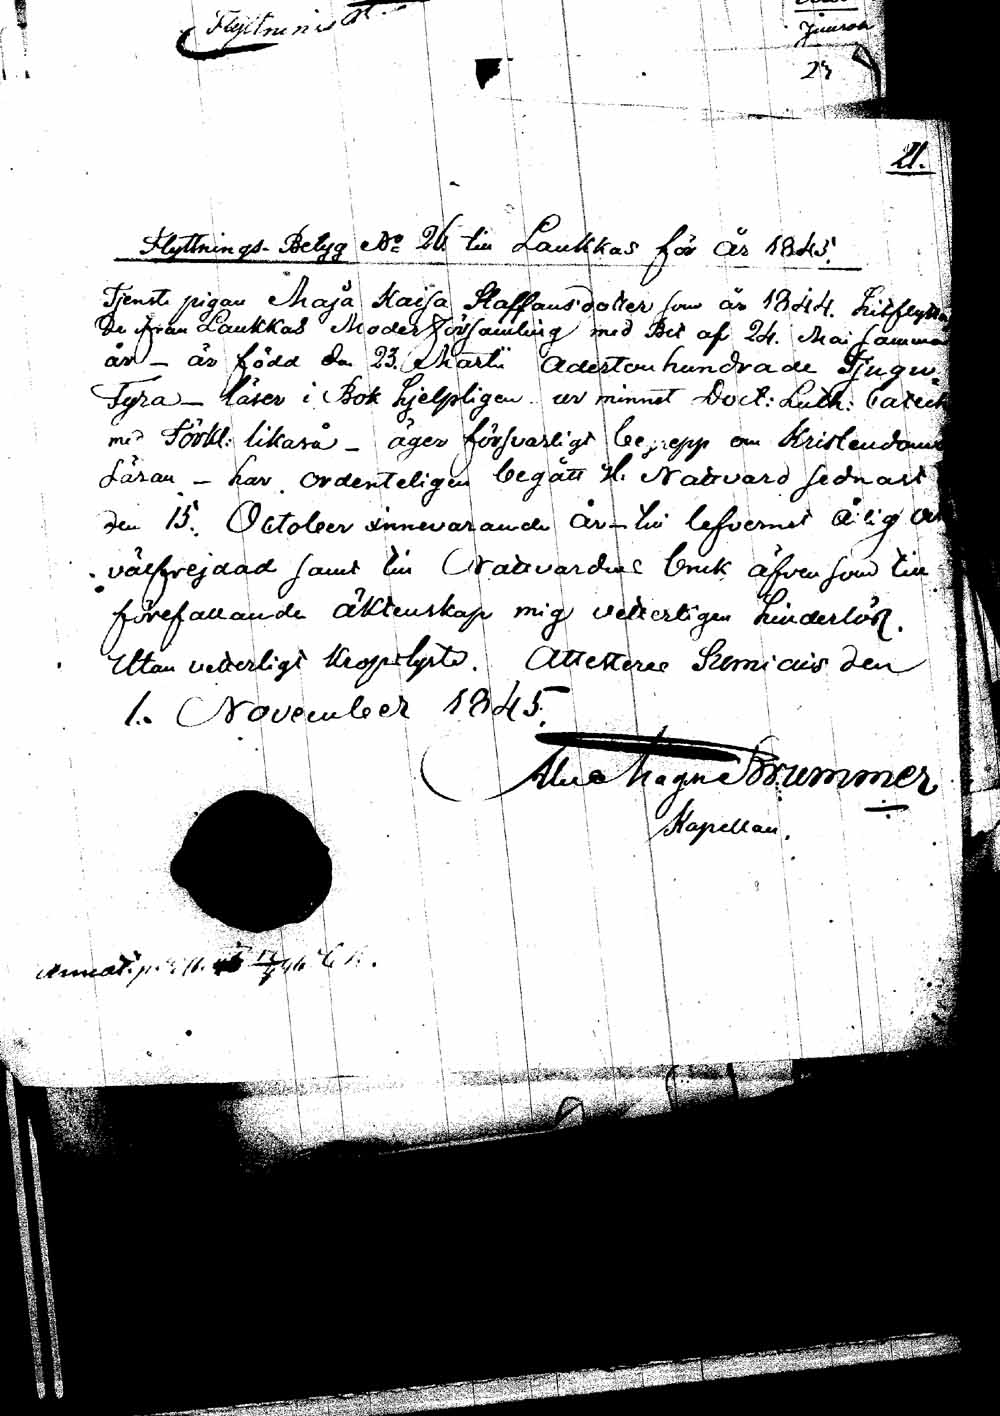 Flyttnings
Junior
23
21.
Flyttnings-Betyg No 26 till Laukkas för år 1845.
Tjenste pigan Maja Kaisa Staffansdotter som år 1844. hitflytta
de från Laukkas Moder Församling med Bet af 24. Mai samma
år – är född den 23. Martii Adertonhundrade Tjugu-
Fyra – läser i Bok hjelpligen ur minnet Doct: Luth: Catech
med Förkl: likaså – äger försvarligt begrepp om Kristendoms
Läran – har ordenteligen begått H. Nattvard sednast
den 15. October innevarande år – till lefvernet ärlig och
välfrejdad samt till Nattvardens bruk äfvensom till
förefallande äktenskap mig vetterligen hinderlös.
Utan vetterligt kroppslyte. Attesterar Sumiais den
1. November 1845.
Magnus Brummer
Kapellan.